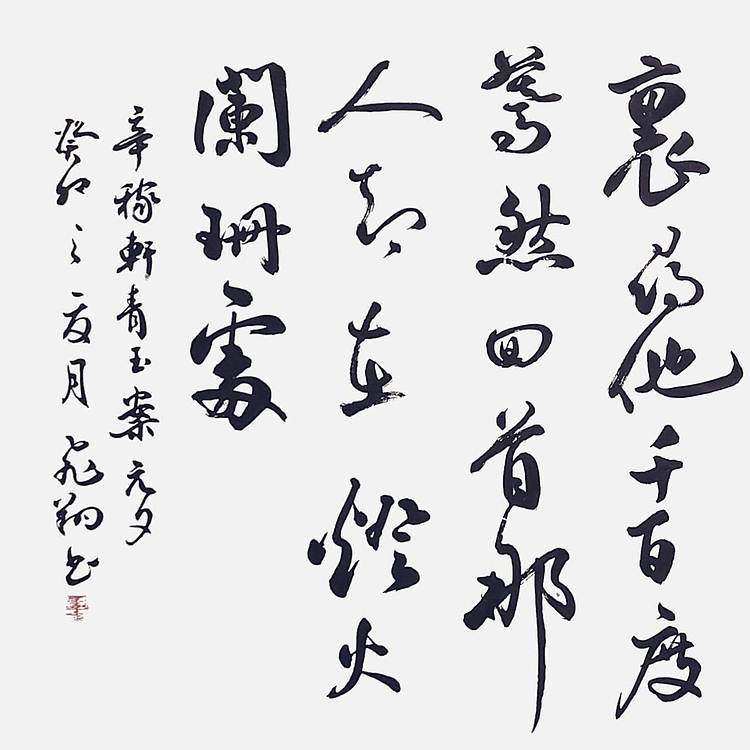 裏尋他千百度
驀然回首那
人却在燈火
闌珊處
辛稼軒青玉案元夕
癸卯之夏月飛翔書